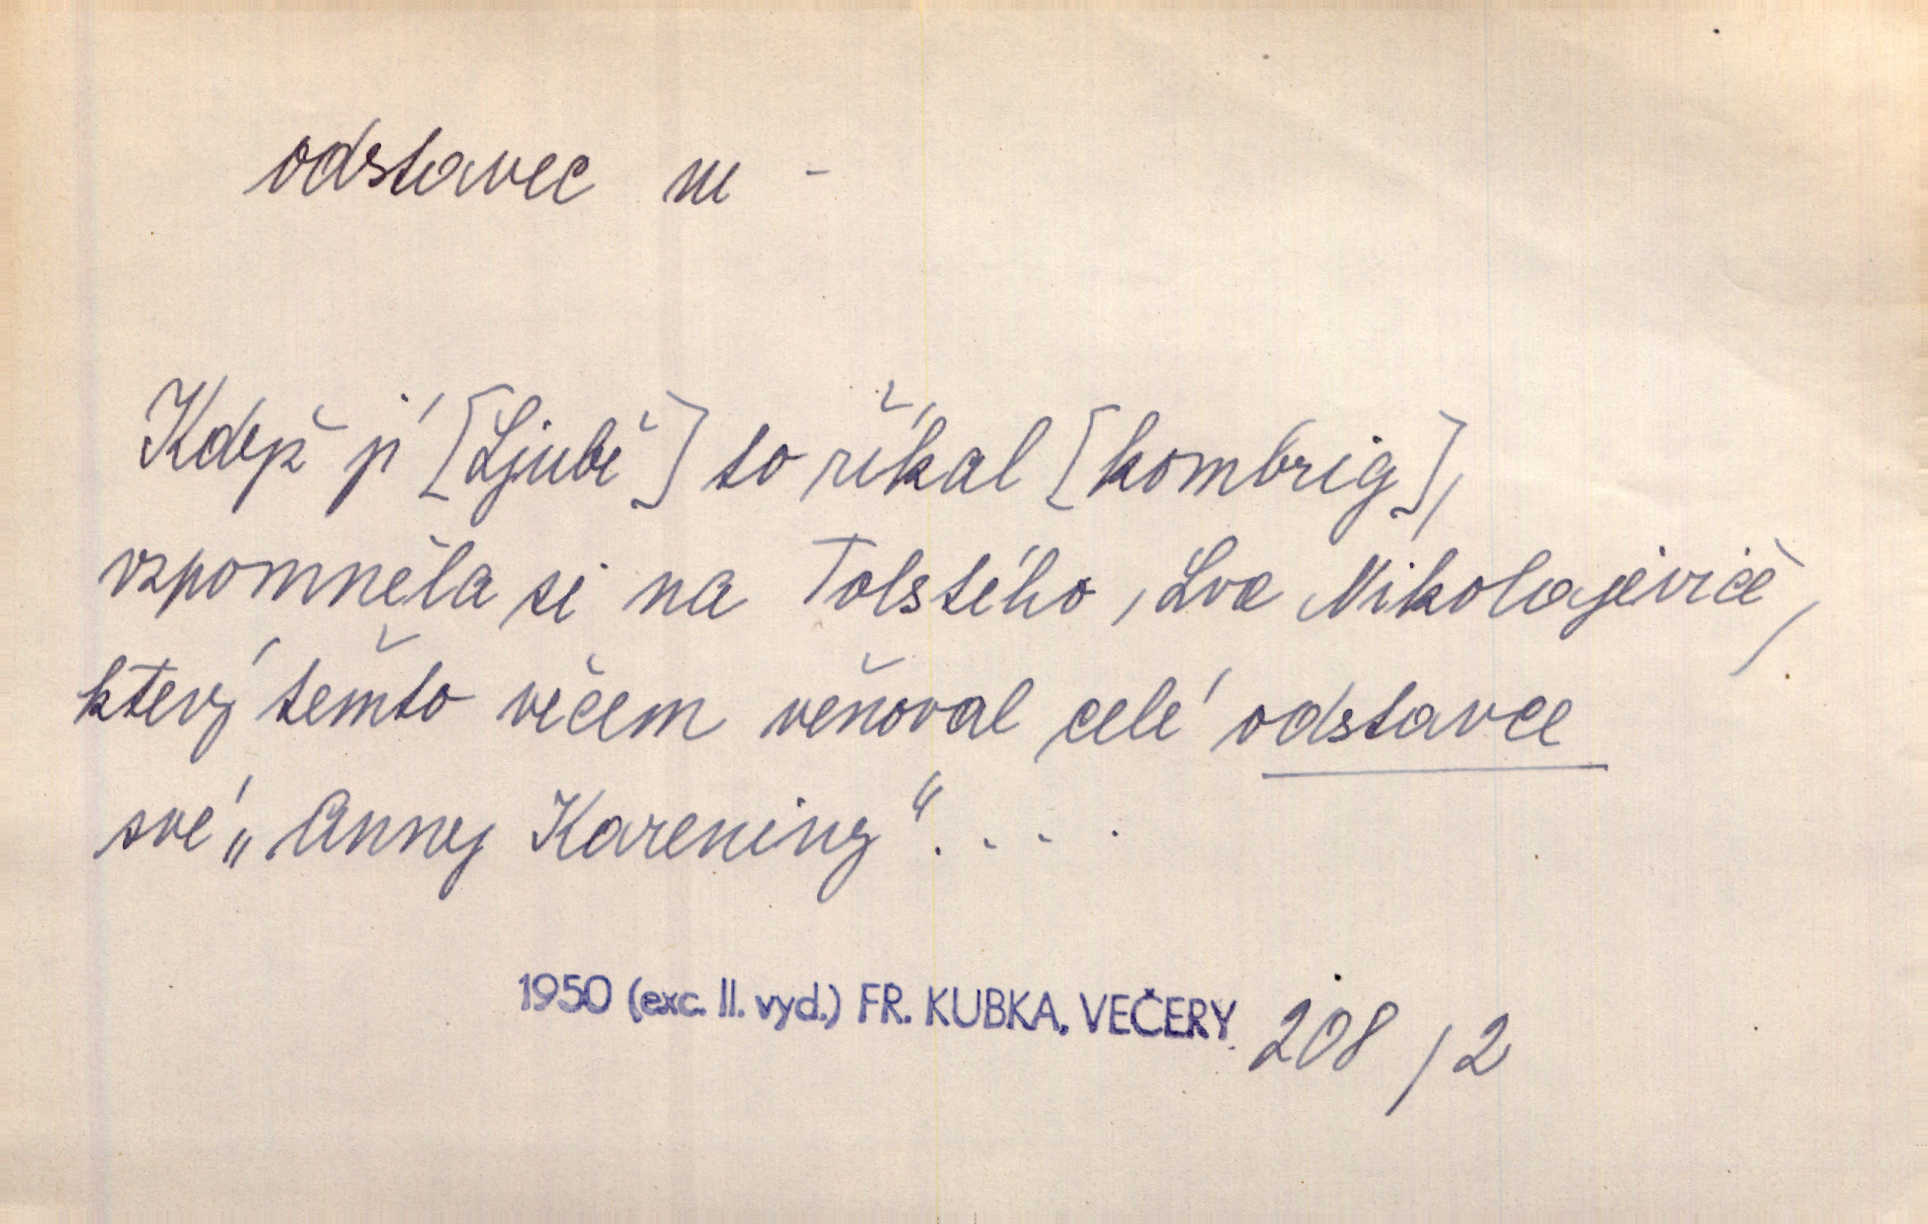 odstavec m -
Když jí [Ljubě] to říkal [kombrig],
vzpomněla si na Tolstého, Lva Nikolajeviče,
který těmto věcem věnoval celé odstavce
své „Anny Kareniny“....
1950 (exc. II. vyd.) FR. KUBKA, VEČERY 208/2